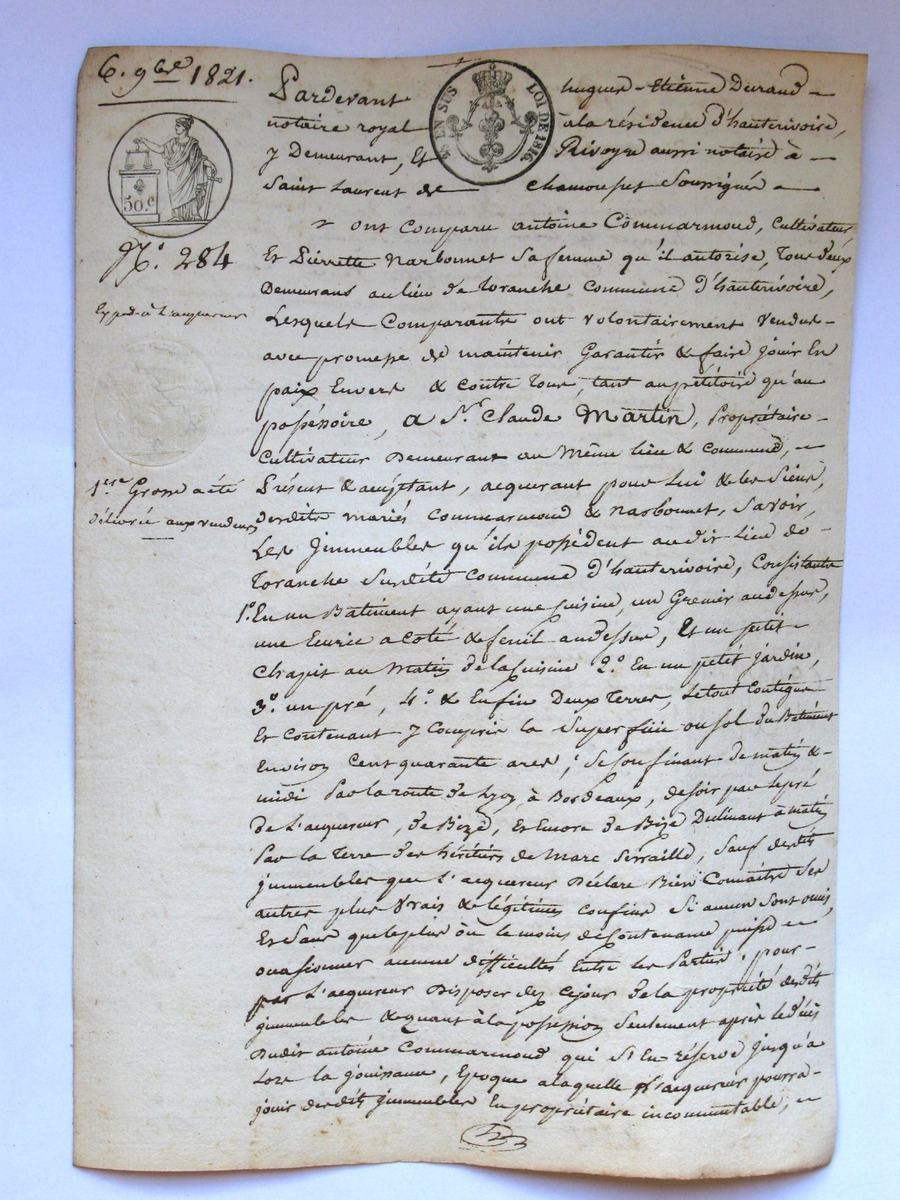 6. 9bre 1821.
50.c
N.o 284
Exped. à l'acquereur
1ere Grosse a été
délivrée aux vendeurs
EN SUS LOI DE 1816
Pardevant hugues-Etienne Durand
notaire royal à la résidence d'hauterivoire,
y Demeurant, Et Rivoyre aussi notaire à
Saint Laurent de Chamousset Soussignés
ont comparu antoine Commarmond, Cultivateur
Et Pierrette Narbonnet sa femme qu'il autorise, Tous deux
Demeurans au lieu de Toranche Commune d'hauterivoire,
Lesquels Comparants ont volontairement vendus
avec promesse de maintenir Garantir & faire jouir En
paix Envers & contre Tous, tant au pétitoire qu'au
possessoire, a Sr. Claude Martin, Propriétaire
Cultivateur Demeurant au Même lieu & Commune,
Présent & acceptant, acquerant pour Lui & les Siens,
desdits mariés Commarmond & Narbonnet, Savoir,
Les Jmmeubles qu'ils possédent au dit Lieu de
Toranche Susdite Commune d'hauterivoire, Consistants
1.o En un Batiment ayant une Cuisine, un Grenier au dessus,
une Ecurie a Coté & fenil au dessus, Et un petit
Chapit au Matin de la Cuisine 2.o En un petit jardin,
3.o un pré, 4.o & Enfin Deux Terres, le tout Contigue
Et Contenant y Compris la Superficie ou sol du Batiment
Environ Cent quarante ares; Se Confinant de matin &
midi Par la route de Lyon à Bordeaux, de soir par le pré
de L'acquereur, de Bize, Et Encore de Bize Déclinant à matin
Par la Terre des héritiers de Marc Serraille, Sauf desdits
jmmeubles que L'acquereur Déclare Bien Connaître Ses
autres plus Vrais & légitimes Confins Si aucun Sont omis,
Et Sans que le plus ou le moins de Contenance puisse
occasionner aucune difficultés Entre les Parties; pour
par L'acquereur Disposer dez cejour de la propriété desdits
jmmeubles & quant à la possession Seulement après le décès
Dudit antoine Commarmond qui S'En réserve jusqu'a
Lors la jouissance, Epoque a laquelle L'acquereur pourra
jouir desdits jmmeubles En propriétaire incommutable,